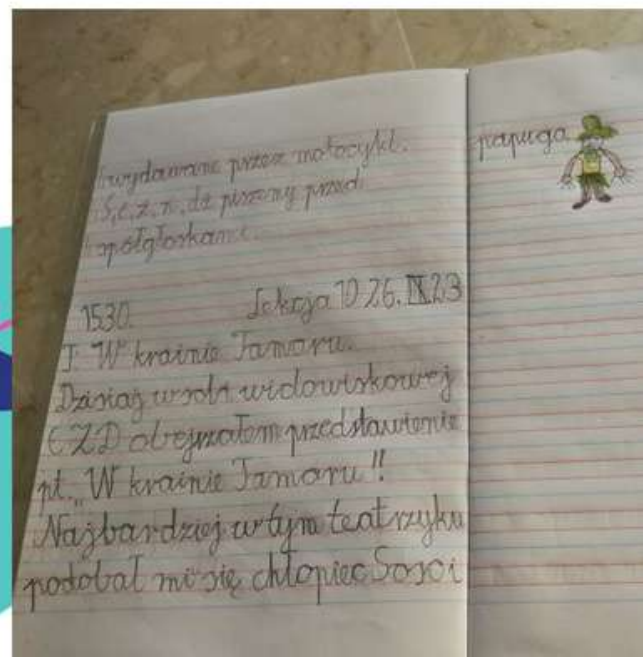 wydawane przez motocykl.
Ś, ć, ź, ń, dź piszemy przed
spółgłoskami.
1530. Lekcja 10 26. IX 23
T. W krainie Tamoru.
Dzisiaj w sali widowiskowej
CZD obejrzałem przedstawienie
pt. „W krainie Tamoru"!
Najbardziej w tym teatrzyku
podobał mi się chłopiec Soso i
papuga